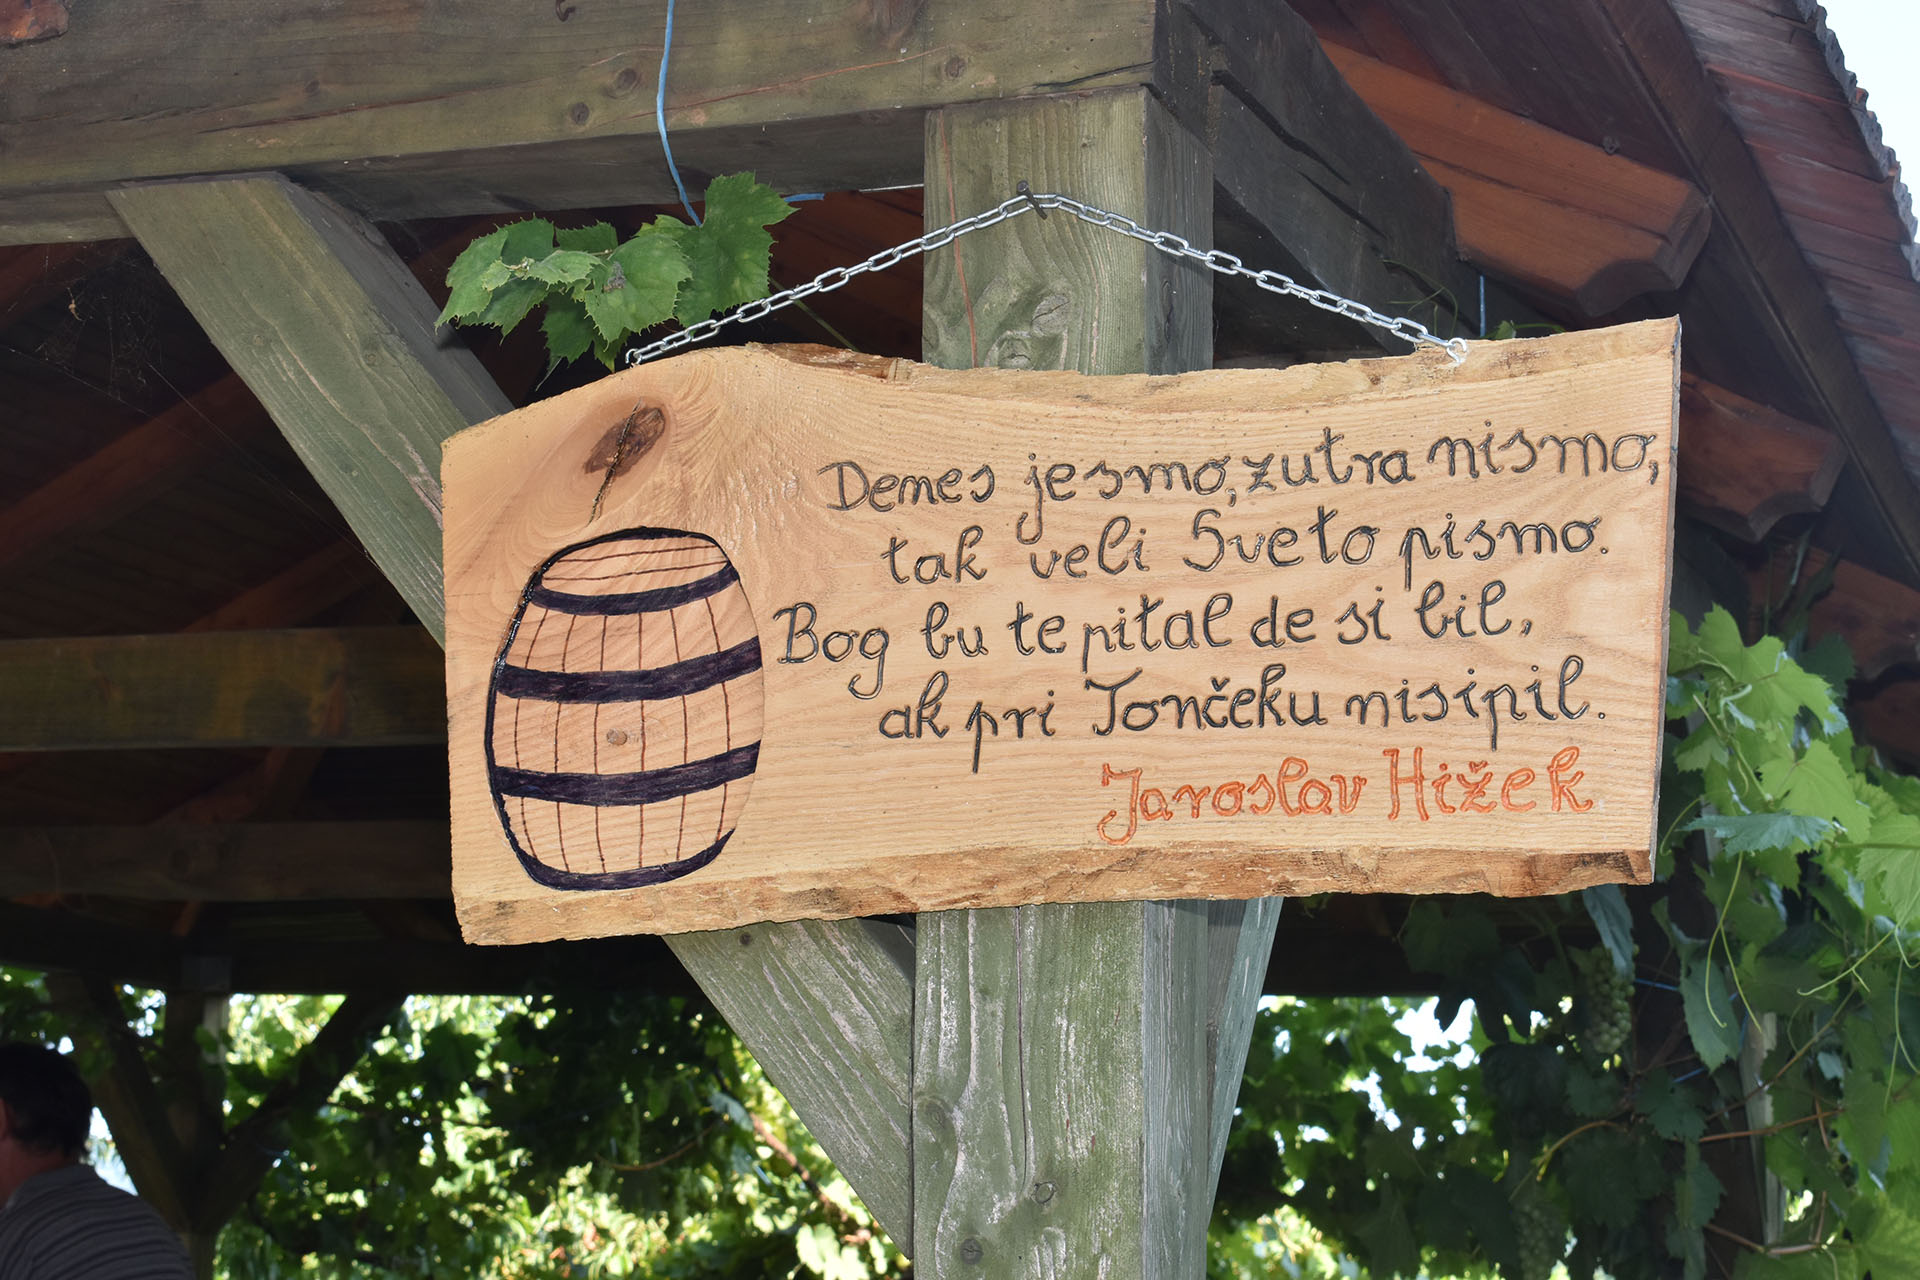 Denes jesmo, zutra nismo,
tak veli Sveto pismo.
Bog bu te pital de si bil,
ak pri Tončeku nisi pil.
Jaroslav Hižek